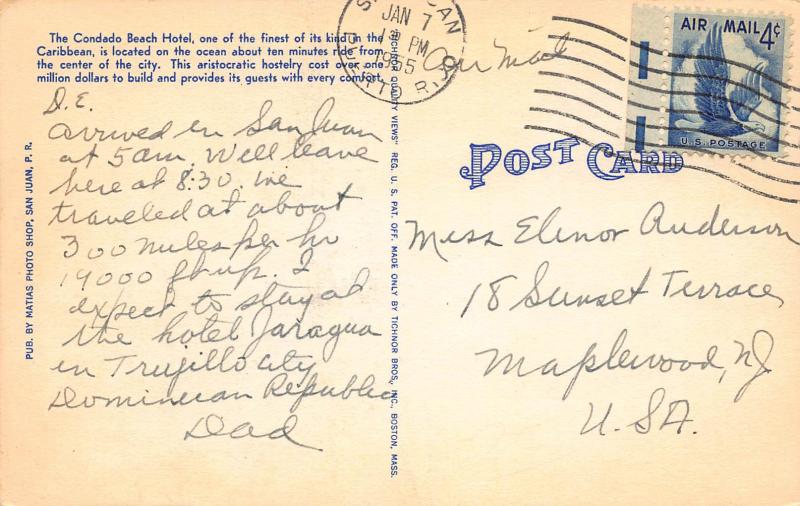 The Condado Beach Hotel, one of the finest of its kind in the
Caribbean, is located on the ocean about ten minutes ride from
the center of the city. This aristocratic hostelry cost over one
million dollars to build and provides its guests with every comfort.
D.E.
arrived in San Juan
at 5 am. We'll leave
here at 8:30. We
traveled at about
300 miles per hr
19000 ft up. I
expect to stay at
the hotel Jaragua
in Trujillo City
Dominican Republic
Dad
PUB. BY MATIAS PHOTO SHOP, SAN JUAN, P. R.
"TICHNOR QUALITY VIEWS" REG. U. S. PAT. OFF. MADE ONLY BY TICHNOR BROS., INC., BOSTON, MASS.
JAN 7
PM
1955
Air Mail
AIR MAIL 4¢
U.S. POSTAGE
POST CARD
Miss Elinor Anderson
18 Sunset Terrace,
Maplewood, NJ
U.S.A.